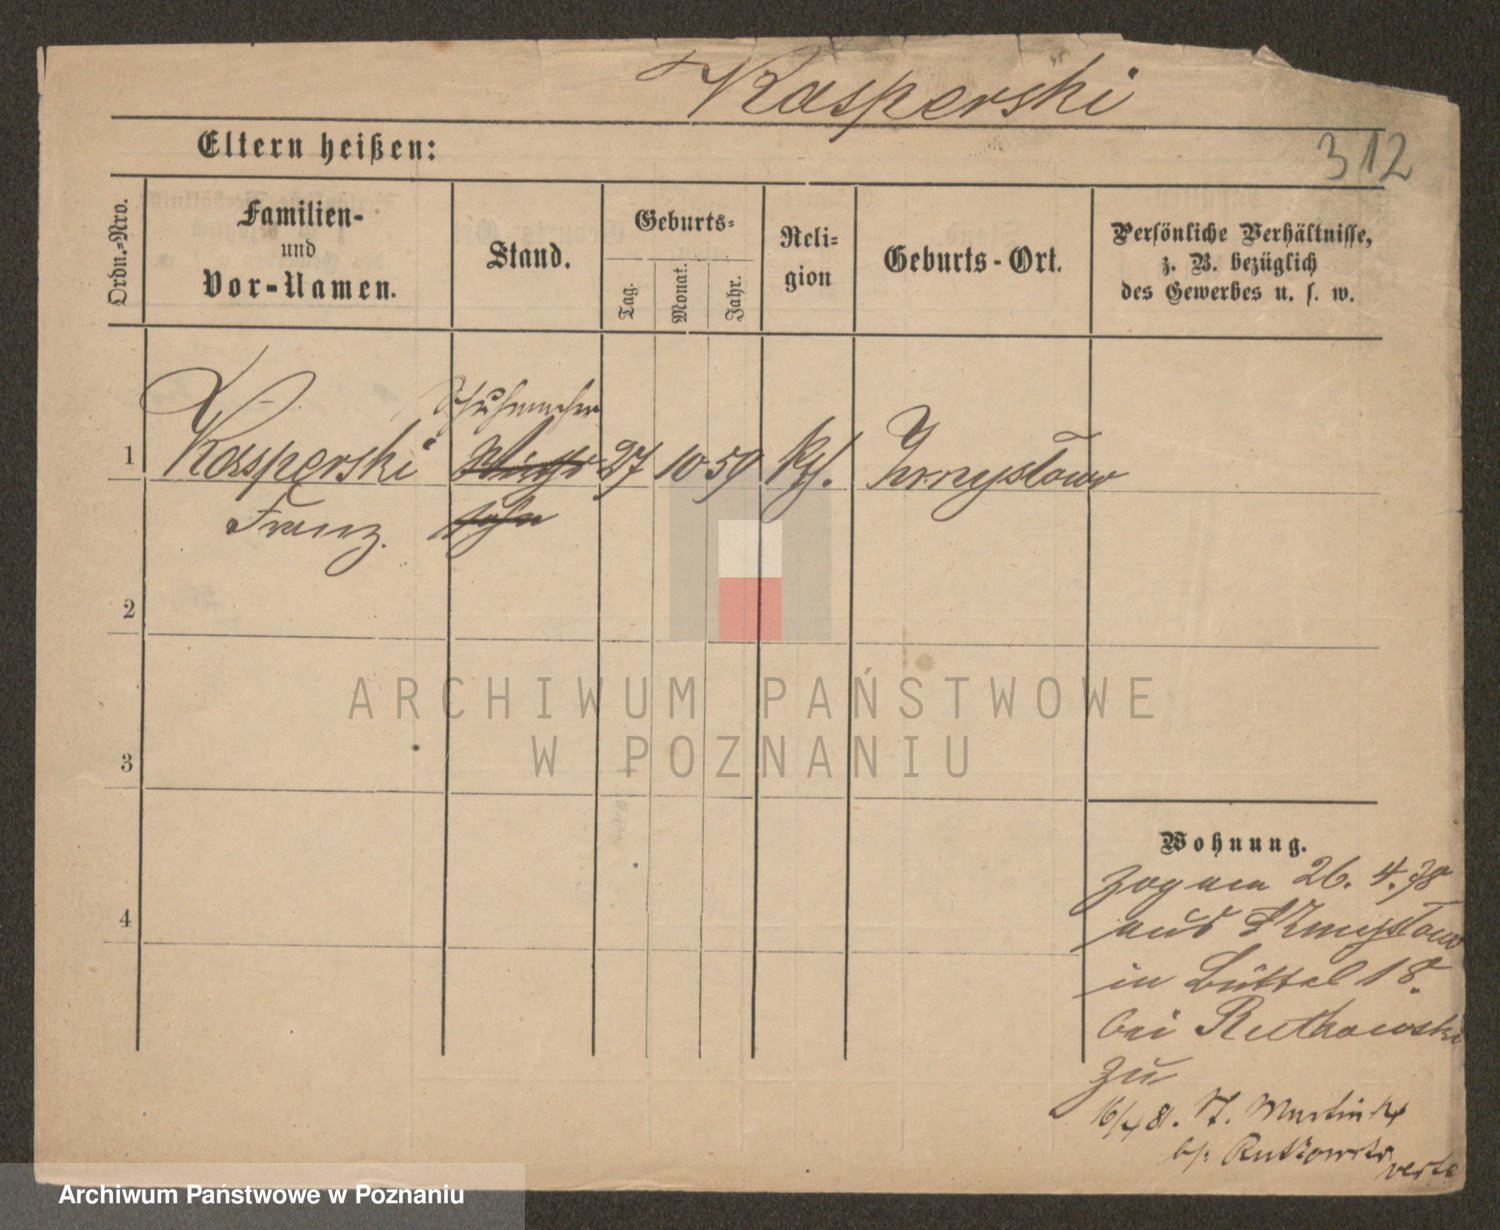 Kasperski
312
Eltern heißen:
Ordn.-Nro.
Familien-
und
Vor-Namen.
Stand.
Geburts-
Tag.
Monat.
Jahr.
Reli-
gion
Geburts-Ort.
Persönliche Verhältnisse,
z. B. bezüglich
des Gewerbes u. s. w.
Schuhmacher
1 Kasperski 27 10 59 kth.
Franz. sohn
2
3
4
ARCHIWUM PAŃSTWOWE
W POZNANIU
Wohnung.
zog am 26. 4. 78
aus
in Büttel 18.
bei Rutkowski
zu
16/4 81. St. Martin
b/: Rutkowski
verte
Archiwum Państwowe w Poznaniu